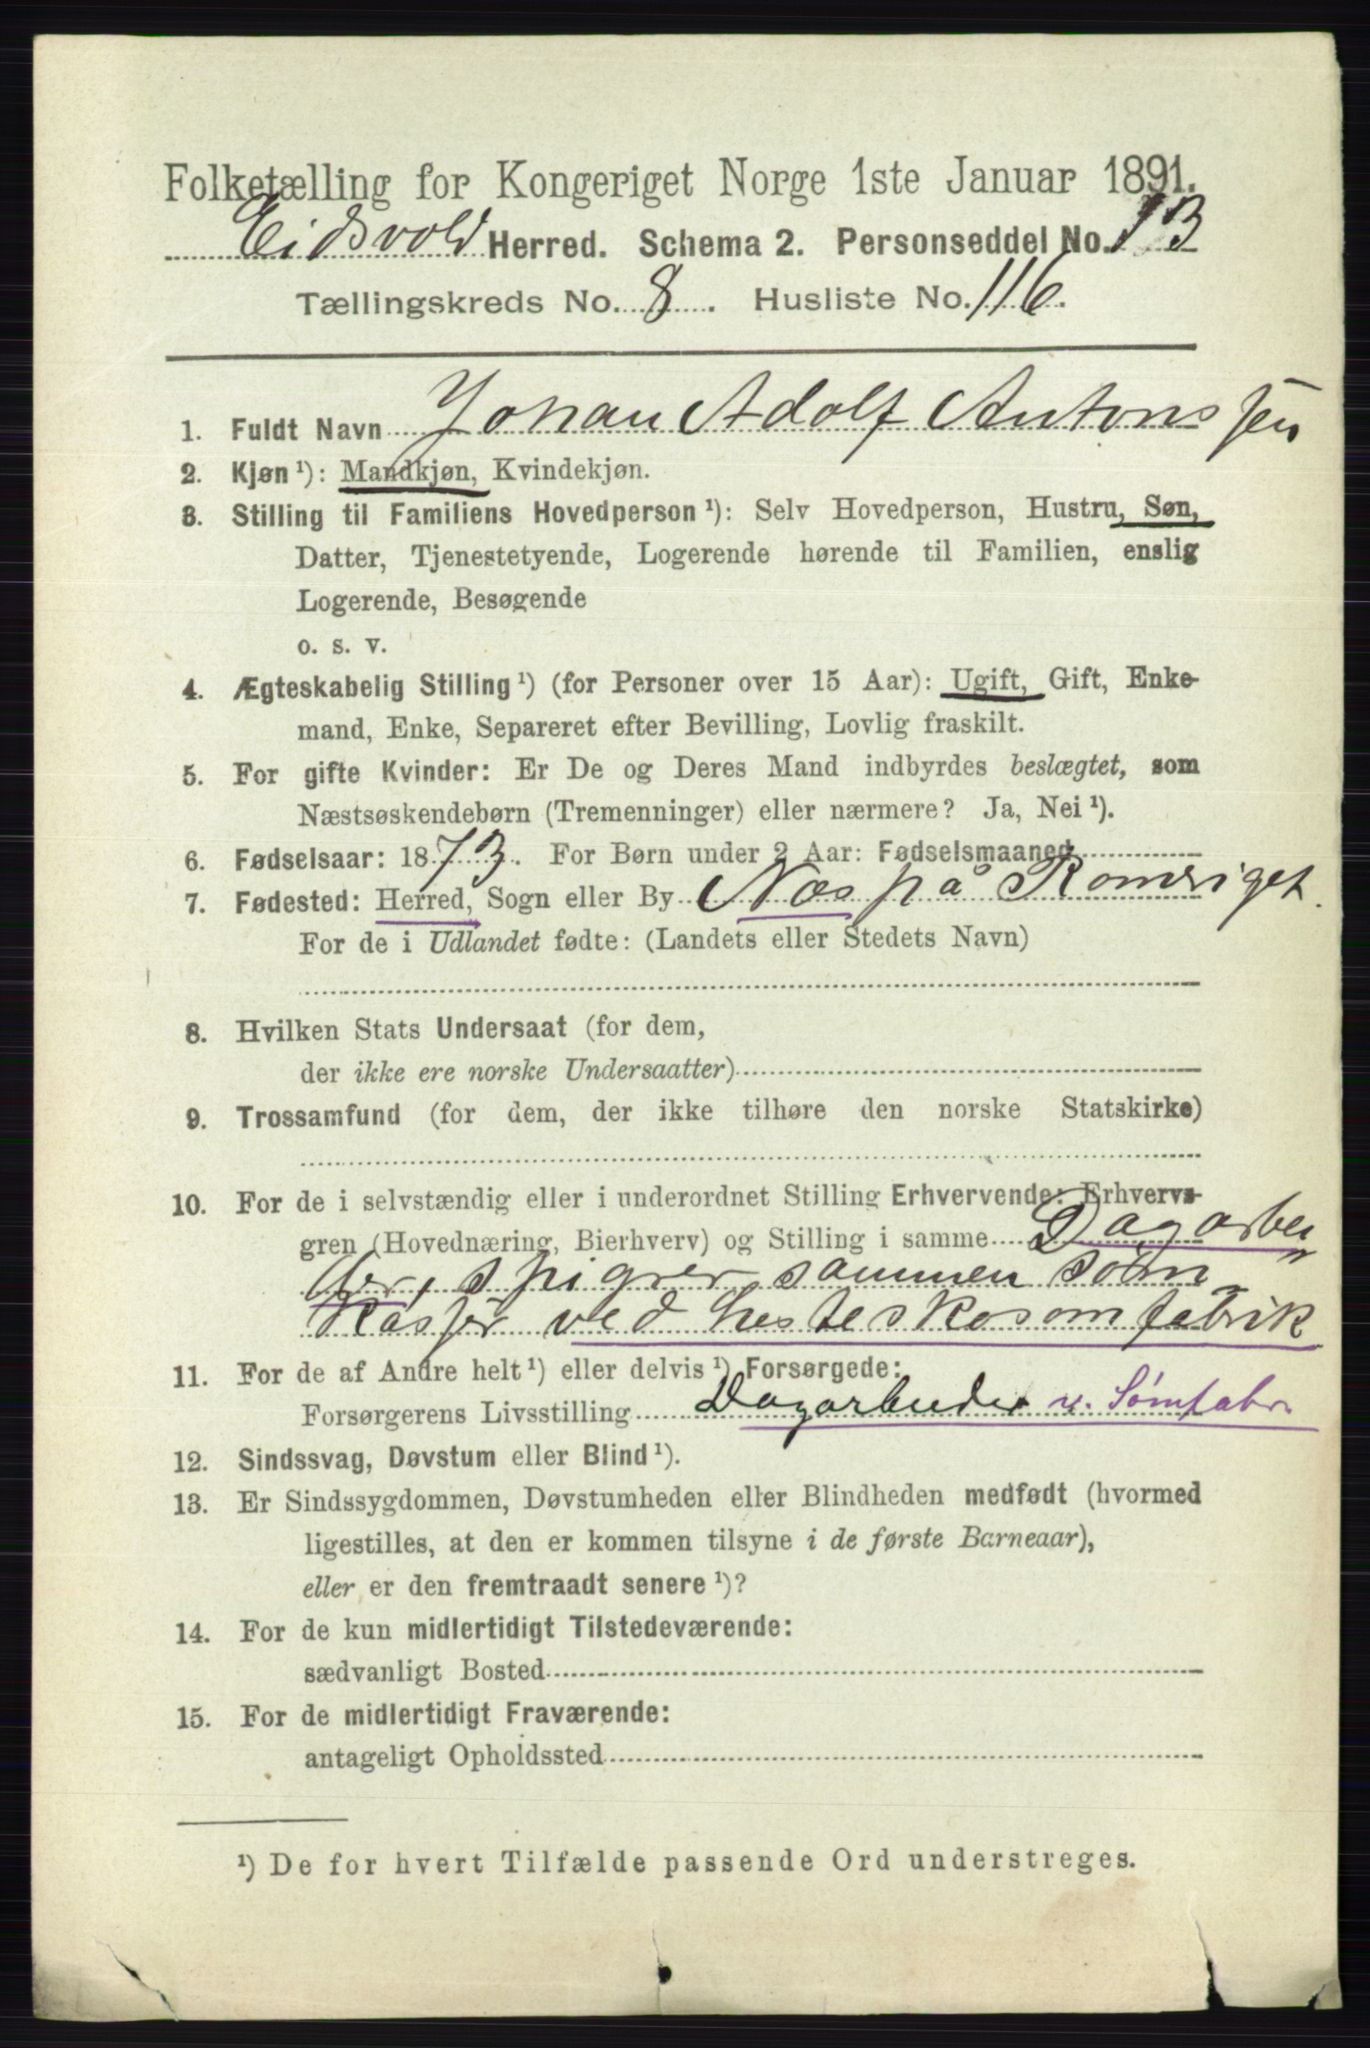 Folketælling for Kongeriget Norge 1ste Januar 1891.
Eidsvold Herred. Schema 2. Personseddel No. 13
Tællingskreds No. 8. Husliste No. 116.
1. Fuldt Navn Johan Adolf Antonssen
2. Kjøn ¹): Mandkjøn, Kvindekjøn.
3. Stilling til Familiens Hovedperson ¹): Selv Hovedperson, Hustru, Søn,
Datter, Tjenestetyende, Logerende hørende til Familien, enslig
Logerende, Besøgende
o. s. v.
4. Ægteskabelig Stilling ¹) (for Personer over 15 Aar): Ugift, Gift, Enke-
mand, Enke, Separeret efter Bevilling, Lovlig fraskilt.
5. For gifte Kvinder: Er De og Deres Mand indbyrdes beslægtet, som
Næstsøskendebørn (Tremenninger) eller nærmere? Ja, Nei ¹).
6. Fødselsaar: 1873. For Børn under 2 Aar: Fødselsmaaned
7. Fødested: Herred, Sogn eller By Næs på Romeriget.
For de i Udlandet fødte: (Landets eller Stedets Navn)
8. Hvilken Stats Undersaat (for dem,
der ikke ere norske Undersaatter)
9. Trossamfund (for dem, der ikke tilhøre den norske Statskirke)
10. For de i selvstændig eller i underordnet Stilling Erhvervende: Erhvervs-
gren (Hovednæring, Bierhverv) og Stilling i samme Dagarbei
der, spigrer sammen söm
Kasser ved hesteskosömfabrik
11. For de af Andre helt ¹) eller delvis ¹) Forsørgede:
Forsørgerens Livsstilling Dagarbeider v. Sømfabr.
12. Sindssvag, Døvstum eller Blind ¹).
13. Er Sindssygdommen, Døvstumheden eller Blindheden medfødt (hvormed
ligestilles, at den er kommen tilsyne i de første Barneaar),
eller er den fremtraadt senere ¹)?
14. For de kun midlertidigt Tilstedeværende:
sædvanligt Bosted
15. For de midlertidigt Fraværende:
antageligt Opholdssted
¹) De for hvert Tilfælde passende Ord understreges.